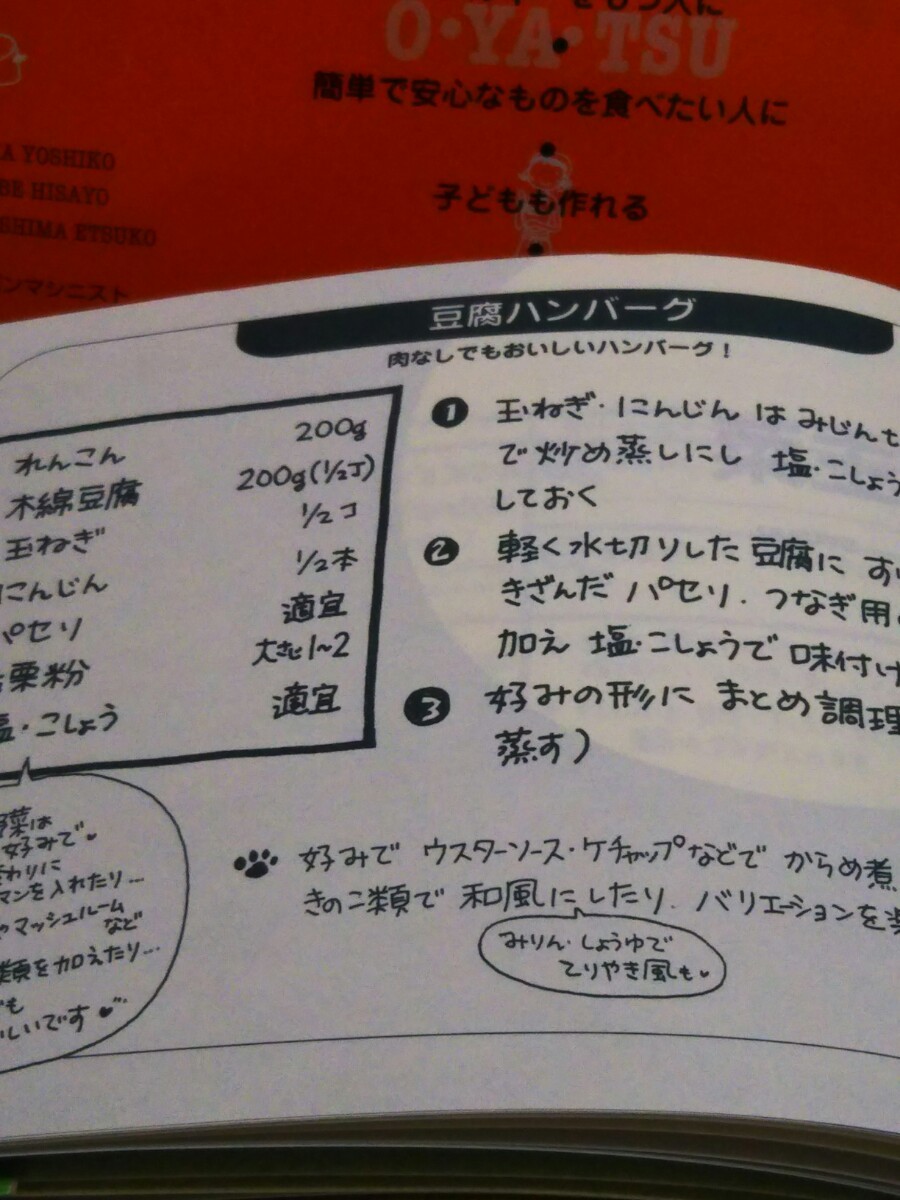 O・YA・TSU
簡単で安心なものを食べたい人に
子どもも作れる
A YOSHIKO
BE HISAYO
SHIMA ETSUKO
ンマシニスト
豆腐ハンバーグ
肉なしでもおいしいハンバーグ！
れんこん 200g
木綿豆腐 200g(1/2丁)
玉ねぎ 1/2コ
にんじん 1/2本
パセリ 適宜
栗粉 大さじ1~2
塩・こしょう 適宜
野菜は
好みで
わりに
マンを入れたり…
やマッシュルーム
など
類を加えたり…
でも
いしいです
1 玉ねぎ・にんじん は みじん
で炒め蒸しにし 塩・こしょう
しておく
2 軽く水切りした豆腐に す
きざんだ パセリ. つなぎ用
加え 塩・こしょうで 味付け
3 好みの形に まとめ調理
蒸す)
好みで ウスターソース・ケチャップなどで からめ煮
きのこ類で 和風にしたり. バリエーションを
みりん・しょうゆで
てりやき風も